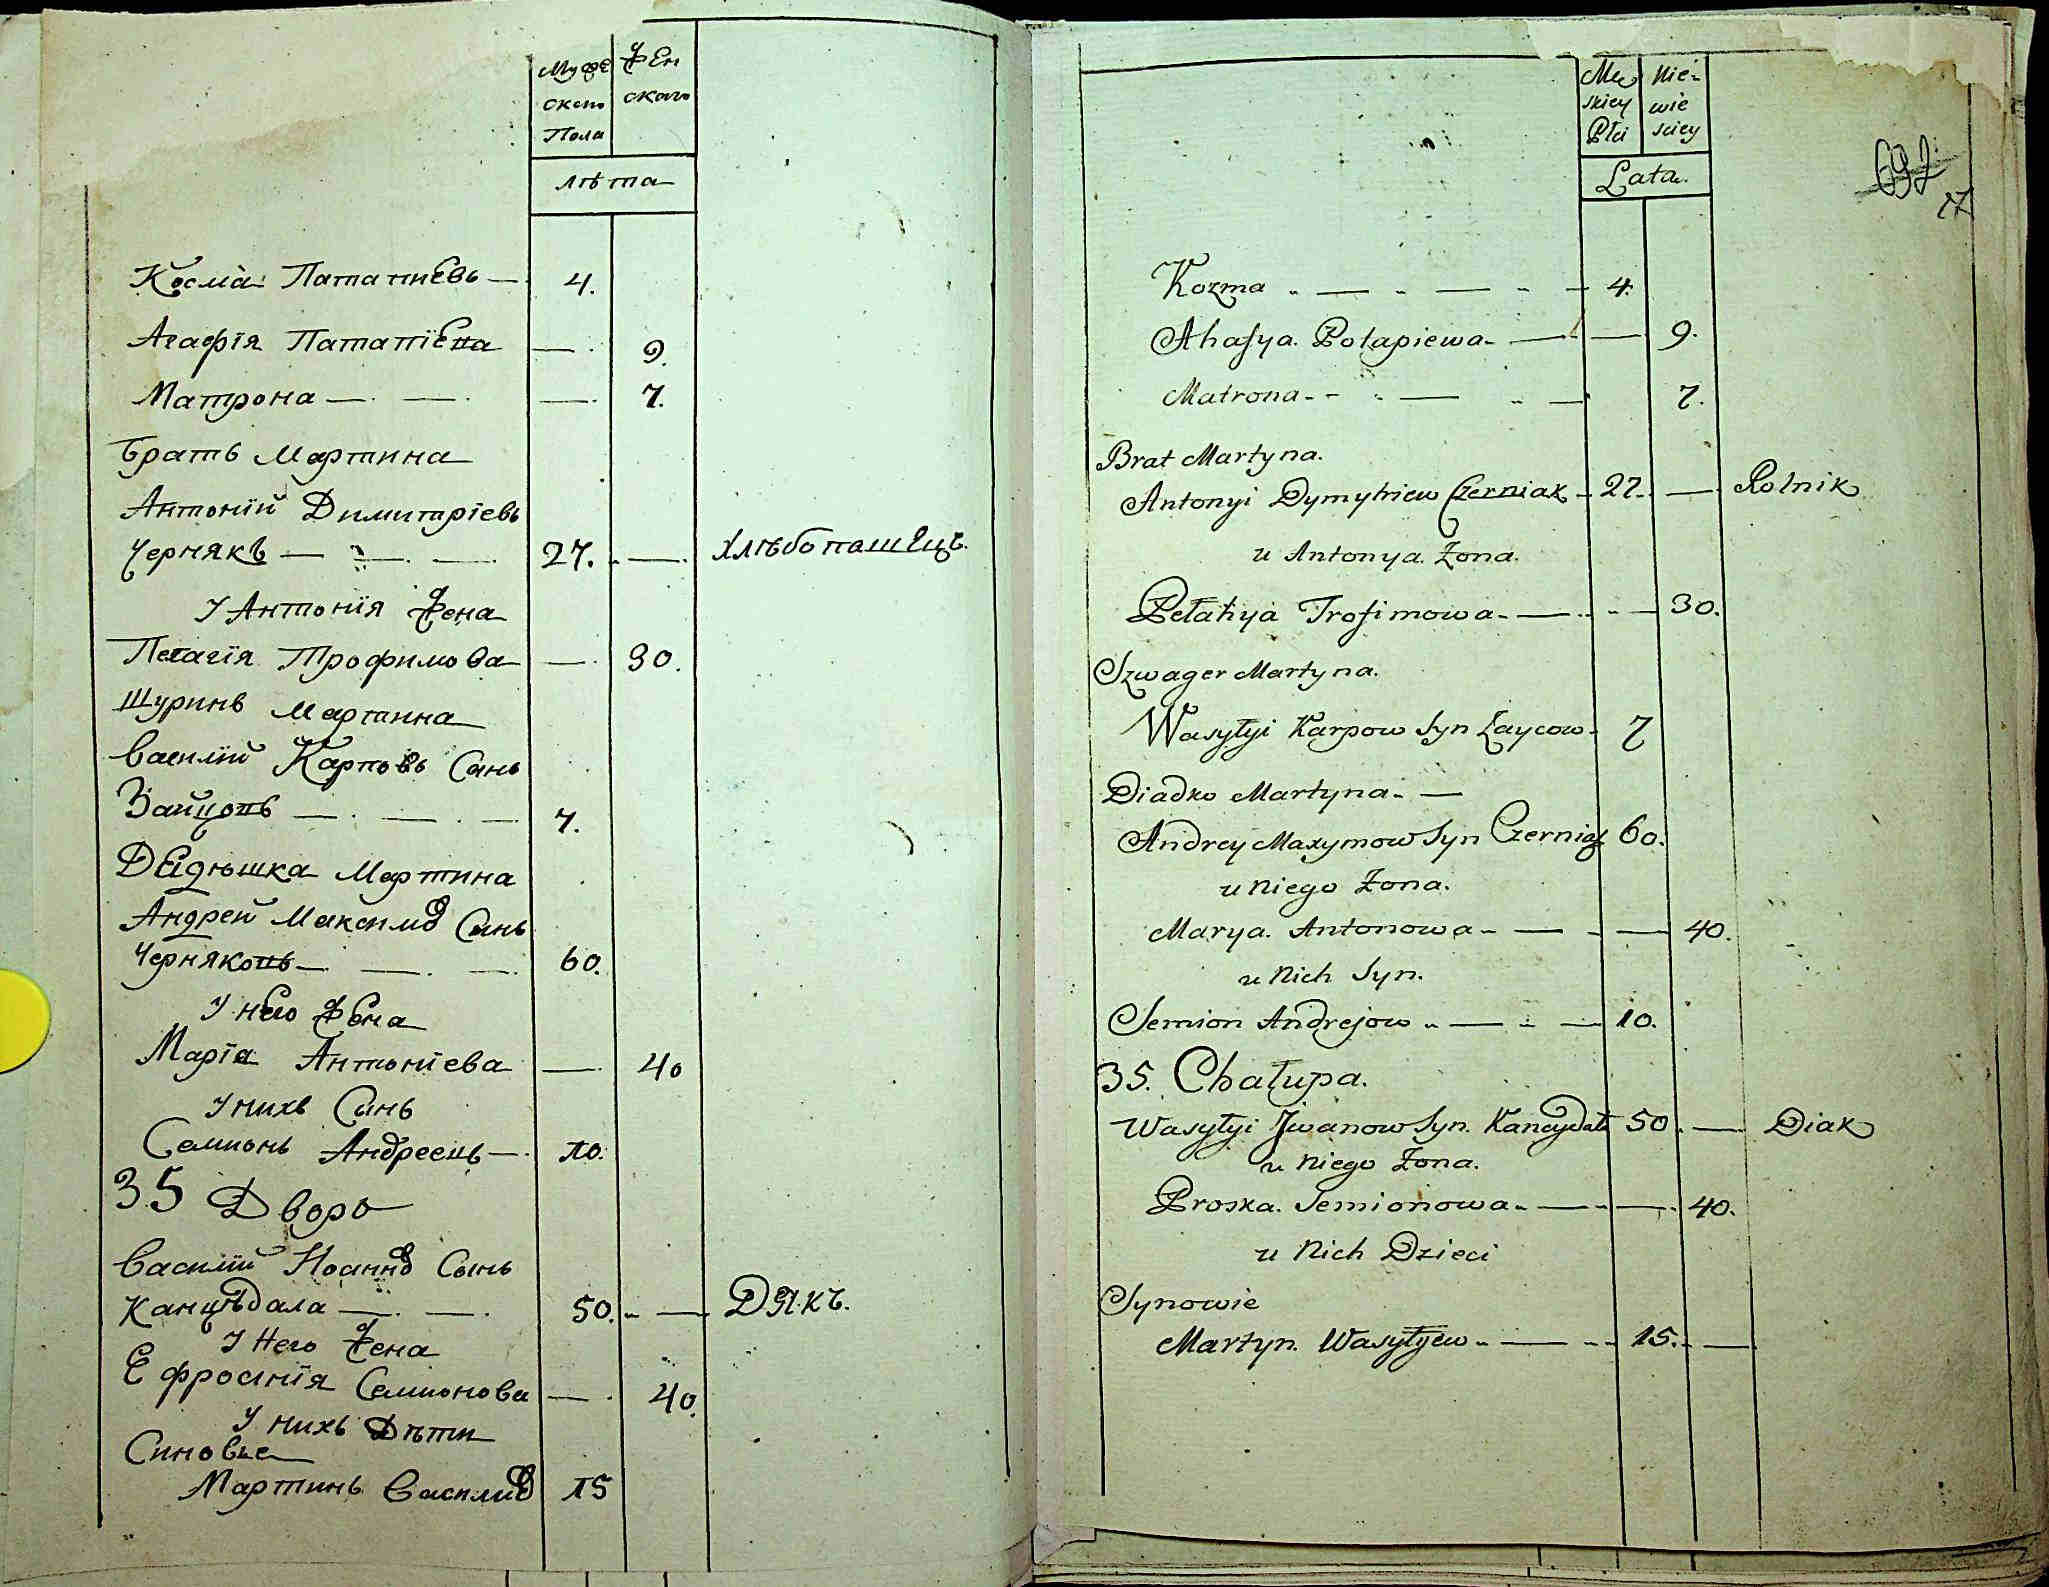 Мужескаго Пола
Женскаго
лѣта
Косма Патапиевъ — 4.
Агафія Патапіева — 9.
Матрона — — — 7.
Братъ Мартина
Антоній Димитріевъ
Чернякъ — — — 27. — хлѣбопашецъ.
У Антонія Жена
Пелагія Трофимова — 30.
Шуринъ Мартина
Василій Карповъ Синъ
Зайцовъ — — — 7.
Дедюшка Мартина
Андрей Максимов Синъ
Черняковъ — — — 60.
У него Жена
Марія Антоніева — 40
У нихъ Синъ
Семионъ Андреевъ — 10.
35 Дворъ
Василій Иоаннов Сынъ
Канцѣдала — — 50. — Дякъ.
У Него Жена
Ефросинія Семионова — 40.
У нихъ Дѣти
Синовье
Мартинъ Васильев 15
Męskiey Płci
Niewieściey
Lata.
692
27
Kozma — — — 4.
Ahafya Potapiewa — — 9.
Matrona — — 7.
Brat Martyna.
Antonyi Dymytriew Czerniak 27. — Rolnik
u Antonya Żona.
Pełahya Trofimowa — — 30.
Szwager Martyna.
Wasyłyi Karpow Syn Zaycow 7
Diadko Martyna. —
Andrey Maxymow Syn Czerniak 60.
u Niego Żona.
Marya Antonowa — — 40.
u Nich Syn.
Semion Andrejow — — 10.
35. Chałupa.
Wasyłyi Jwanow Syn Kancydała 50. — Diak
u Niego Żona.
Proska Semionowa — — 40.
u Nich Dzieci
Synowie
Martyn Wasyłyew — 15. —